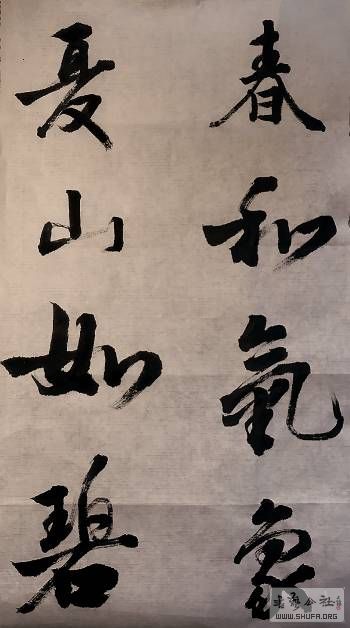 春和氣象
夏山如碧
书法公社
WWW.SHUFA.ORG